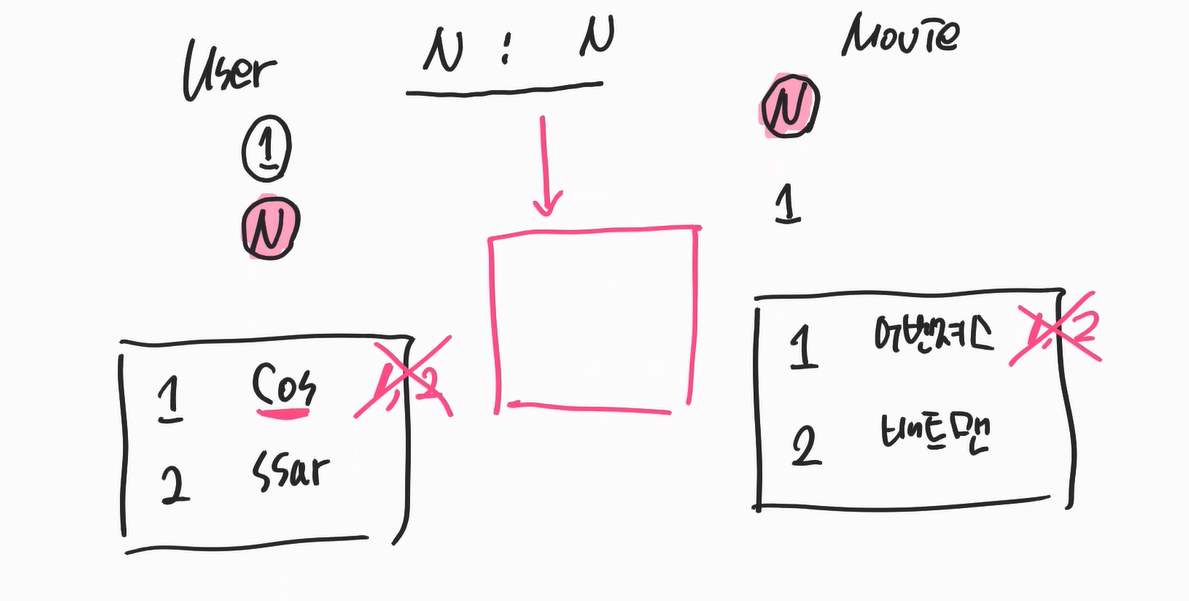 User
N : N
Movie
1
N
N
1
1 Cos 1, 2
2 ssar
1 어벤져스 1, 2
2 배트맨